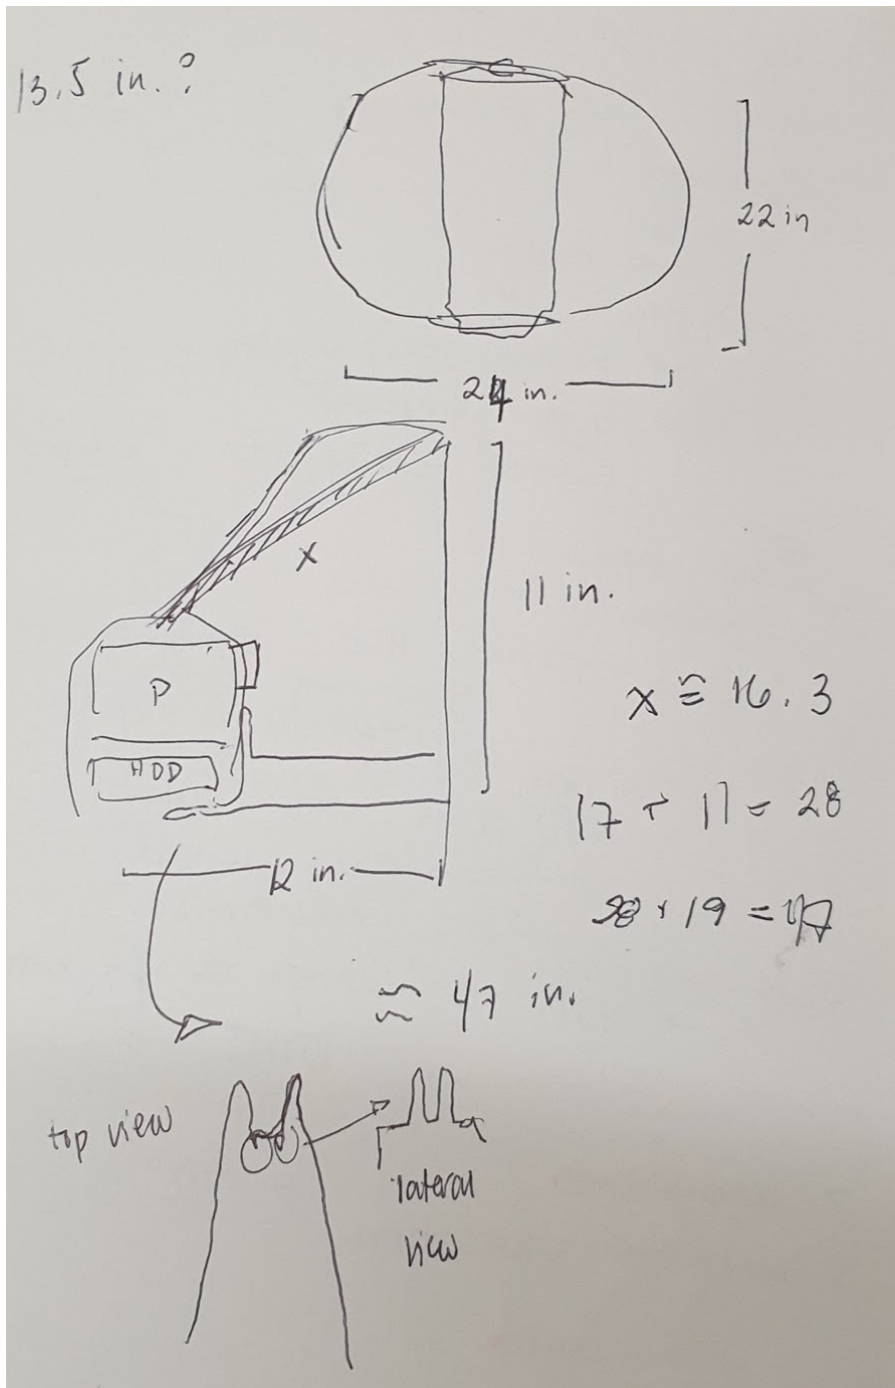 13.5 in.?
22 in
24 in.
x
11 in.
P
HDD
x ≅ 16.3
17 + 11 = 28
12 in.
28 + 19 = 47
≈ 47 in.
top view
lateral
view